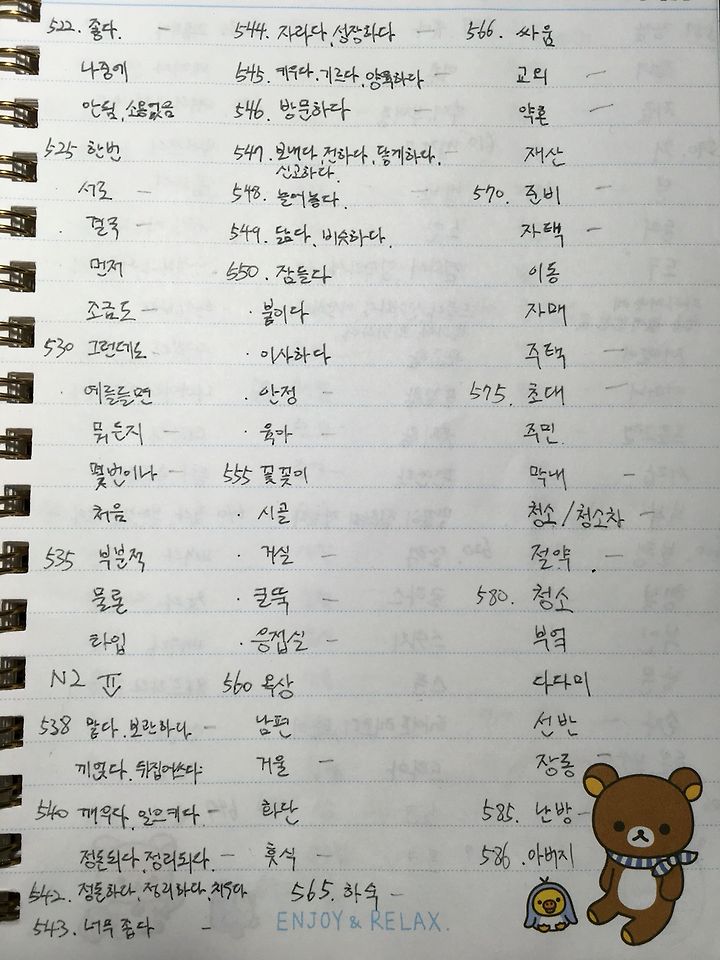 522. 좋다. -
나중에
안됨, 소용없음
525 한번
서로 -
결국
먼저
조금도 -
530 그런데도
예를들면
뭐든지 -
몇번이나 -
처음
535 부분적
물론
타입
N2 Ⅱ
538 맑다. 보관하다. -
끼얹다. 뒤집어쓰다.
540 깨우다, 일으키다 -
정돈되다, 정리되다. -
542. 정돈하다, 정리하다, 치우다
543. 너무 좁다 -
544. 자라다, 성장하다 -
545. 키우다, 기르다, 양육하다 -
546. 방문하다
547. 보내다, 전하다, 닿게하다,
신고하다.
548. 늘어놓다.
549. 닮다, 비슷하다.
550. 잠들다
· 붙이다
· 이사하다
· 안정 -
· 육아 -
555 꽃꽂이
· 시골
· 거실 -
· 굴뚝 -
· 응접실 -
560 옥상
남편
거울 -
화단
휴식 -
565. 하숙 -
566. 싸움
교외 -
약혼 -
재산
570. 준비 -
자택 -
이동
자매
주택 -
575. 초대 -
주민
막내 -
청소/청소차 -
절약 . -
580. 청소
부엌
다다미
선반
장롱 -
585. 난방 -
586. 아버지
ENJOY & RELAX.